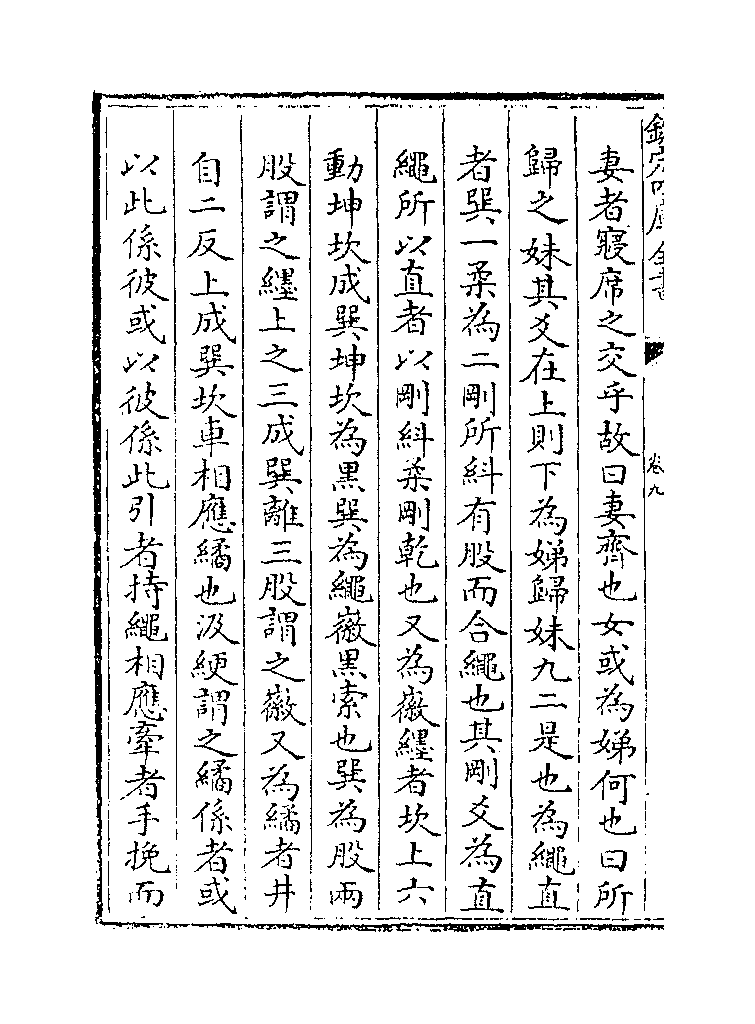 欽定四庫全書
卷九
妻者寢席之交乎故曰妻齊也女或為娣何也曰所
歸之妹其爻在上則下為娣歸妹九二是也為繩直
者巽一柔為二剛所糾有股而合繩也其剛爻為直
繩所以直者以剛糾柔剛乾也又為徽纆者坎上六
動坤坎成巽坤坎為黑巽為繩徽黑索也巽為股兩
股謂之纆上之三成巽離三股謂之徽又為繘者井
自二反上成巽坎車相應繘也汲綆謂之繘係者或
以此係彼或以彼係此引者持繩相應牽者手挽而